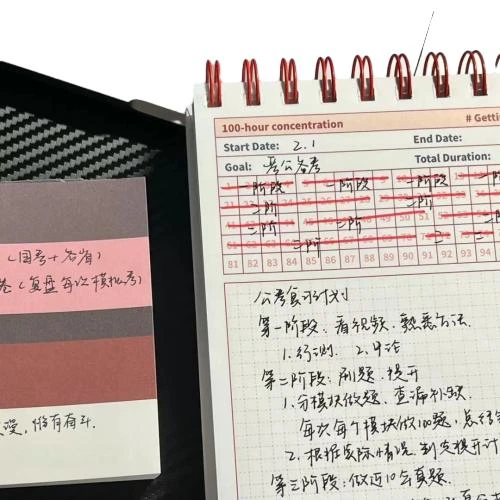 (国考+各省)
卷(复盘每次模拟考)
漫,惟有奋斗.
100-hour concentration
# Getti
Start Date: 2.1
End Date:
Goal: 考公备考
Total Duration:
一阶段 一阶段 一阶段 一阶
二阶
二阶 二阶 二阶
三阶
81 82 83 84 85 86 87 88 89 90 91 92 93 94
公考复习计划
第一阶段:看视频.熟悉方法.
1.行测 2.申论
第二阶段:刷题.提升
1.分模块做题.查漏补缺.
每次每个模块做100题,总结
2.根据实际情况.制定提升计
第三阶段:做近10套真题.